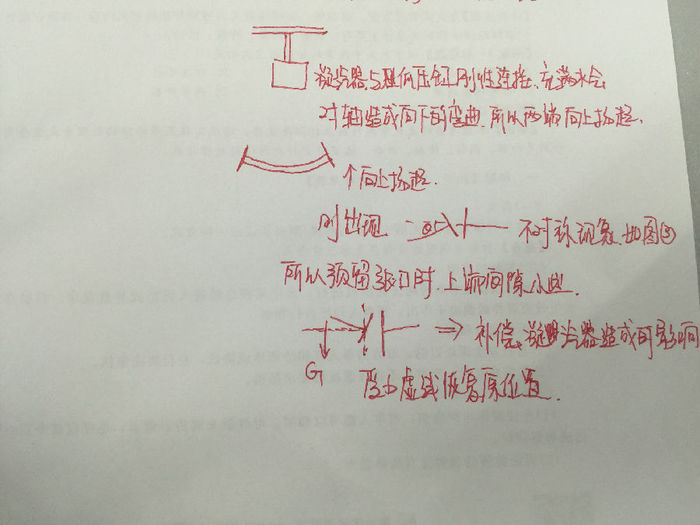 凝汽器与低压缸刚性连接、充满水会
对轴造成向下的弯曲、所以两端向上扬起.
个向上扬起.
则出现 不对称现象、如图③
所以预留张口时、上端间隙小些.
G ⇒ 补偿、凝汽器造成的影响
受力虚线恢复原位置.